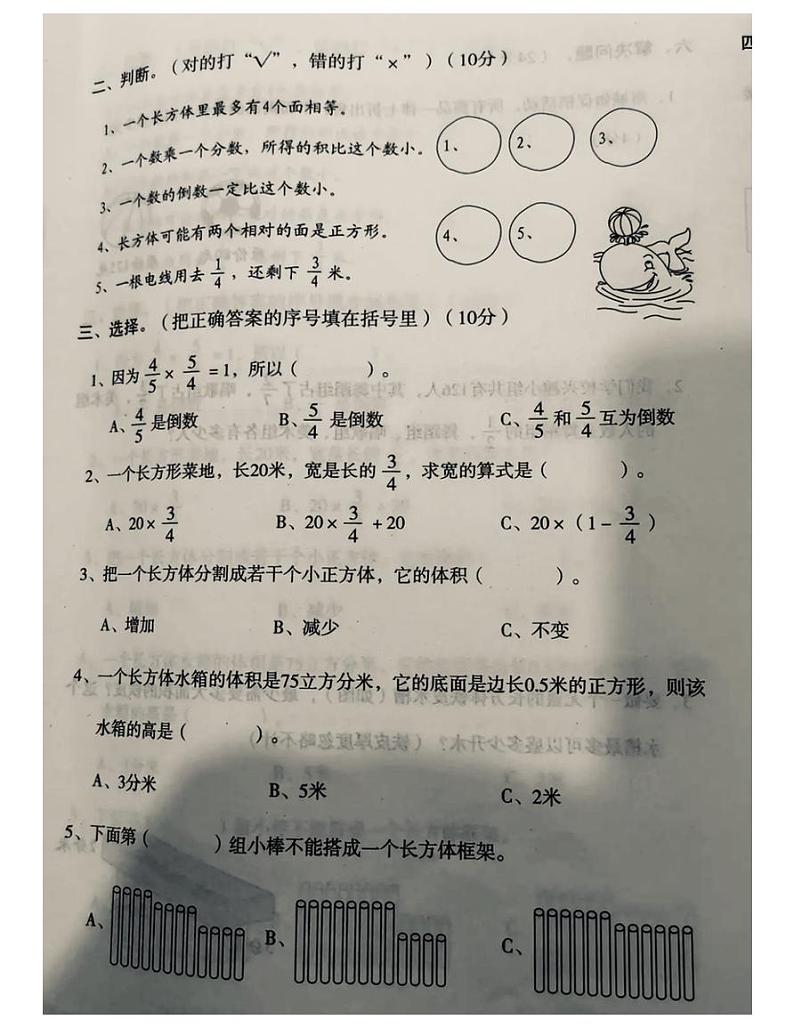 四
二、判断。（对的打“√”，错的打“×”）（10分）
1、一个长方体里最多有4个面相等。
2、一个数乘一个分数，所得的积比这个数小。
1、 2、 3、
3、一个数的倒数一定比这个数小。
4、长方体可能有两个相对的面是正方形。
4、 5、
5、一根电线用去1/4，还剩下3/4米。
三、选择。（把正确答案的序号填在括号里）（10分）
1、因为4/5×5/4=1，所以（　　）。
A、4/5是倒数 B、5/4是倒数 C、4/5和5/4互为倒数
2、一个长方形菜地，长20米，宽是长的3/4，求宽的算式是（　　）。
A、20×3/4 B、20×3/4+20 C、20×（1-3/4）
3、把一个长方体分割成若干个小正方体，它的体积（　　）。
A、增加 B、减少 C、不变
4、一个长方体水箱的体积是75立方分米，它的底面是边长0.5米的正方形，则该
水箱的高是（　　）。
A、3分米 B、5米 C、2米
5、下面第（　　）组小棒不能搭成一个长方体框架。
A、 B、 C、